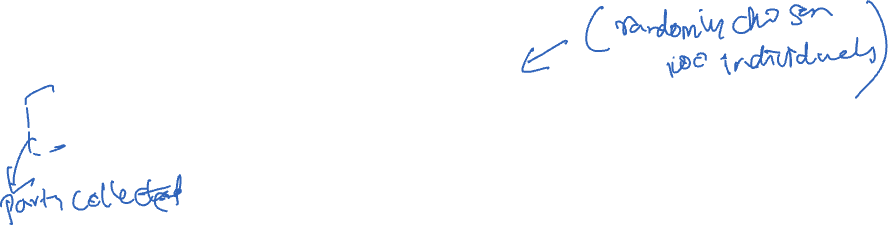 (randomly chosen
100 individuals)
party collected